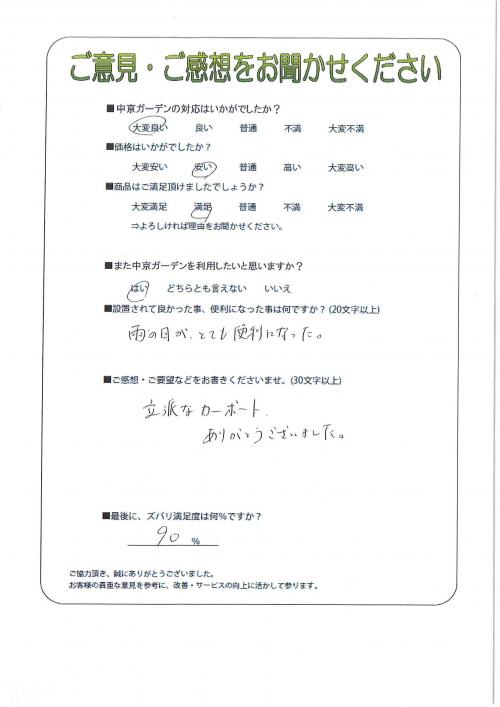 ご意見・ご感想をお聞かせください
■中京ガーデンの対応はいかがでしたか？
大変良い 良い 普通 不満 大変不満
■価格はいかがでしたか？
大変安い 安い 普通 高い 大変高い
■商品はご満足頂けましたでしょうか？
大変満足 満足 普通 不満 大変不満
⇒よろしければ理由をお聞かせください。
■また中京ガーデンを利用したいと思いますか？
はい どちらとも言えない いいえ
■設置されて良かった事、便利になった事は何ですか？(20文字以上)
雨の日が、とても便利になった。
■ご感想・ご要望などをお書きくださいませ。(30文字以上)
立派なカーポート
ありがとうございました。
■最後に、ズバリ満足度は何%ですか？
90 %
ご協力頂き、誠にありがとうございました。
お客様の貴重な意見を参考に、改善・サービスの向上に活かして参ります。